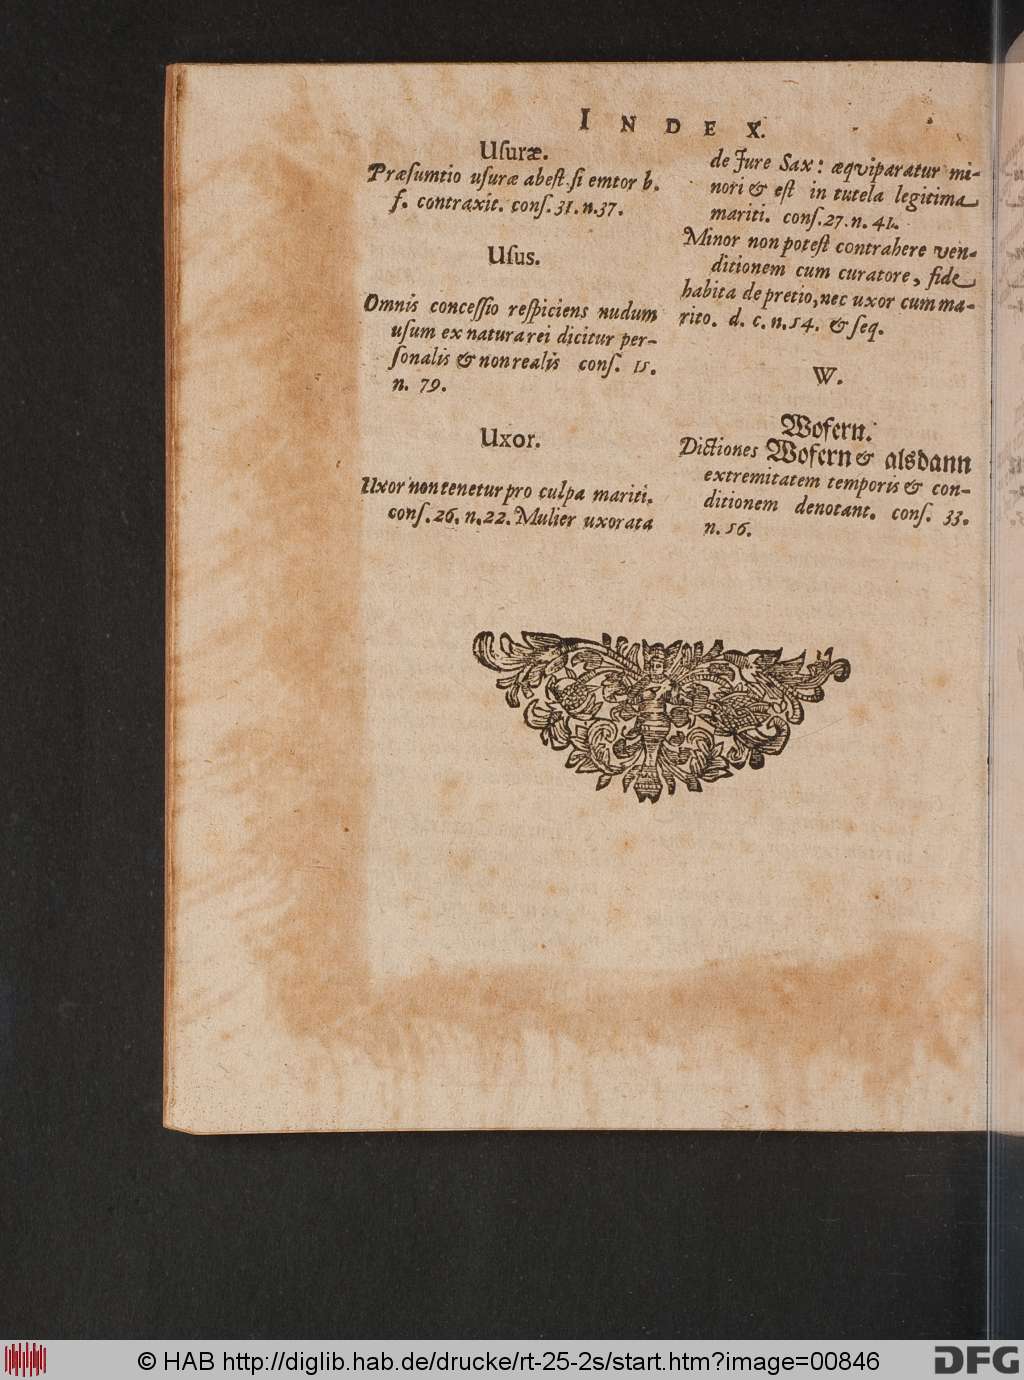 INDEX.
Uſuræ.
Præſumtio uſuræ abeſt ſi emtor b.
f. contraxit. conſ. 31. n. 37.
Uſus.
Omnis conceſſio reſpiciens nudum
uſum ex natura rei dicitur per-
ſonalis & non realis conſ. 15.
n. 79.
Uxor.
Uxor non tenetur pro culpa mariti.
conſ. 26. n. 22. Mulier uxorata
de Jure Sax: æqviparatur mi-
nori & eſt in tutela legitima
mariti. conſ. 27. n. 41.
Minor non poteſt contrahere ven-
ditionem cum curatore, fide
habita de pretio, nec uxor cum ma-
rito. d. c. n. 54. & ſeq.
W.
Wofern.
Dictiones Wofern & alsdann
extremitatem temporis & con-
ditionem denotant. conſ. 33.
n. 56.
© HAB http://diglib.hab.de/drucke/rt-25-2s/start.htm?image=00846
DFG